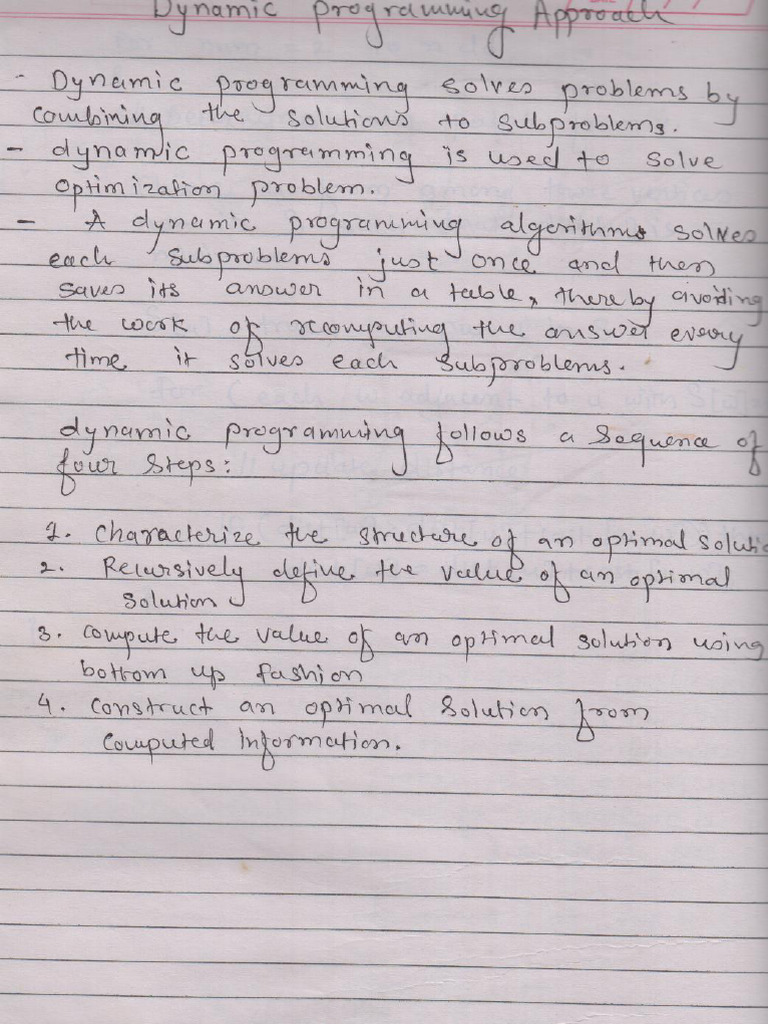 Dynamic Programming Approach
- Dynamic programming solves problems by
combining the solutions to subproblems.
- dynamic programming is used to solve
optimization problem.
- A dynamic programming algorithms solves
each subproblems just once and then
saves its answer in a table, there by avoiding
the work of recomputing the answer every
time it solves each subproblems.
dynamic programming follows a sequence of
four steps:
1. characterize the structure of an optimal soluti
2. Recursively define the value of an optimal
solution
3. compute the value of an optimal solution using
bottom up fashion
4. construct an optimal solution from
computed information.